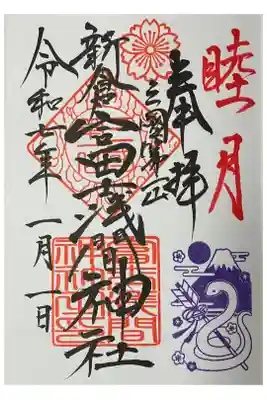 睦月
奉拝
三國第一山
新倉富士浅間神社
令和七年 一月一日